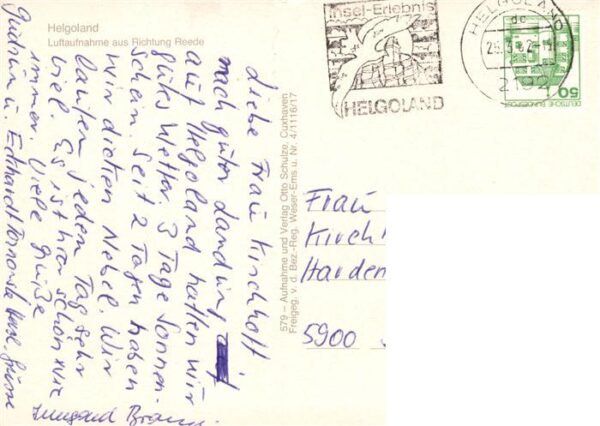 Helgoland
Luftaufnahme aus Richtung Reede
Liebe Frau Kirchhoff!
nach guter Landung
auf Helgoland hatten wir
gutes Wetter. 3 Tage Sonnen-
schein. Seit 2 Tagen haben
wir dichten Nebel. Wir
laufen jeden Tag sehr
viel. Es ist hier schön wie
immer. Liebe Grüße
Gudrun u. Edthardt
Herzl. Grüsse
Irmgard
579 – Aufnahme und Verlag Otto Schulze, Cuxhaven
Freigeg. v. d. Bez.-Reg. Weser-Ems u. Nr. 4/1116/17
Insel-Erlebnis
HELGOLAND
HELGOLAND
do
2192
50
DEUTSCHE BUNDESPOST
Frau
Kirch
Harden
5900